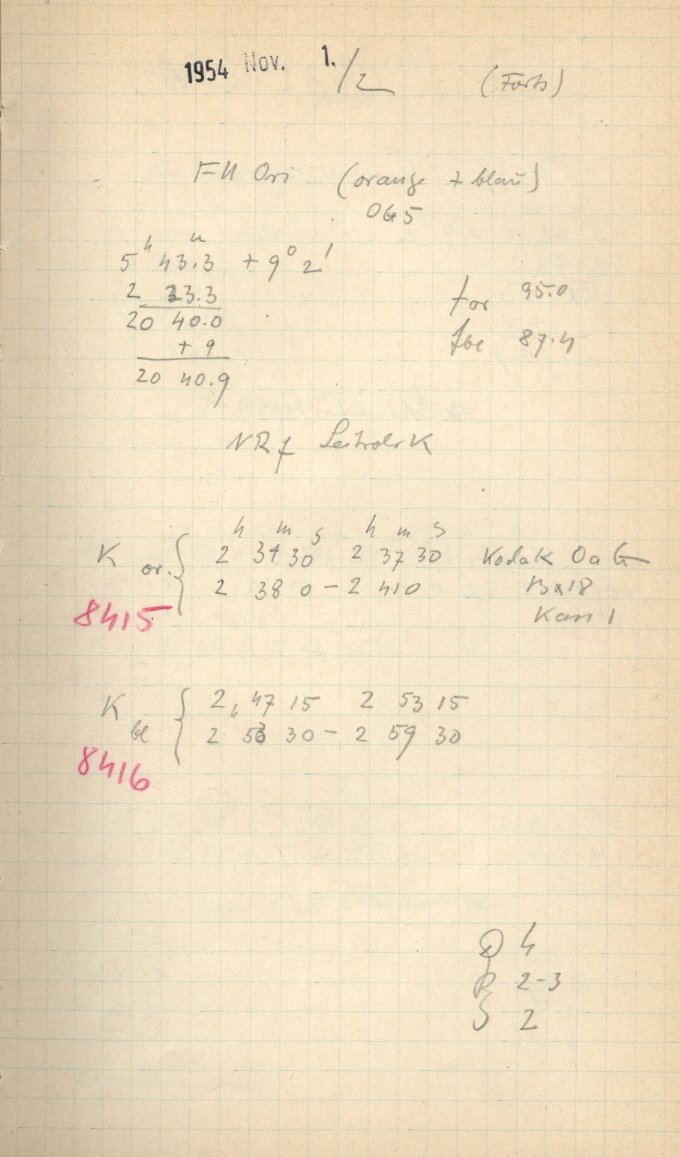 1954 Nov. 1./2 (Forts)
FU Ori (orange + blau)
OG5
5h 43.3m + 9° 2'
2 33.3
20 40.0
+ 9
20 40.9
for 95.0
fbl 87.4
NRf
K or. { 2h 34m 30s 2h 37m 30s Kodak OaG
2 38 0 – 2 41 0 13x18
8415 Kass 1
K bl { 2 47 15 2 53 15
2 53 30 – 2 59 30
8416
D 4
R 2-3
S 2